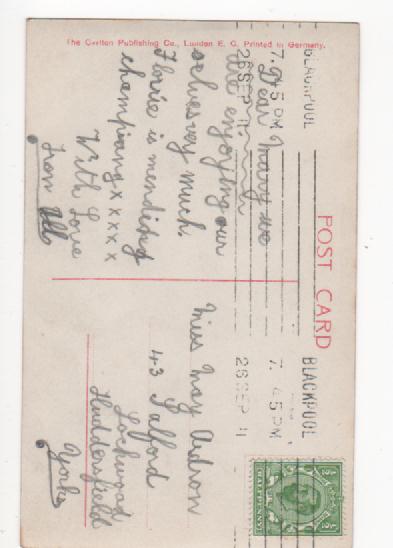 The Carlton Publishing Co., London E. C. Printed in Germany.
POST CARD
BLACKPOOL
7.45 PM
26 SEP 11
BLACKPOOL
7. 45 PM
26 SEP 11
HALFPENNY
Dear Mary we
are enjoying our
selves very much.
Florrie is mending
champiang x x x x x
With Love
From All
Miss May
43 Salford
Lockwood
Huddersfield
Yorks